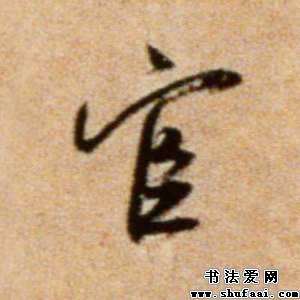 宦
书法爱网
www.shufaai.com